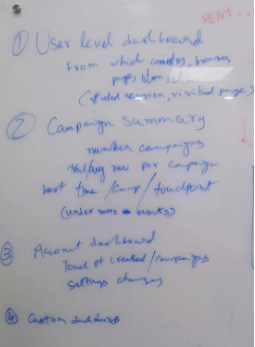 VENT...
① User level dashboard
from which country, browser
pages
(started session, visited pages)
② Campaign Summary
number campaigns
rev per campaign
best time / camp / touchpoint
(under some events)
③ Account dashboard
Touch pt created / campaigns
settings changes
④ Custom dashboards